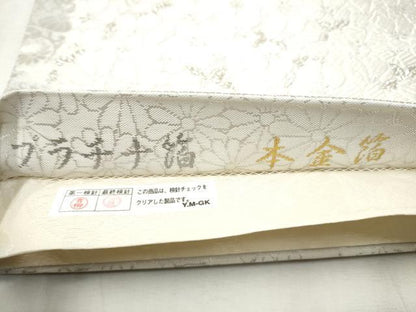 プラチナ箔 本金箔
第一検針 最終検針
この商品は、検針チェックを
クリアした製品です。 Y.M-GK